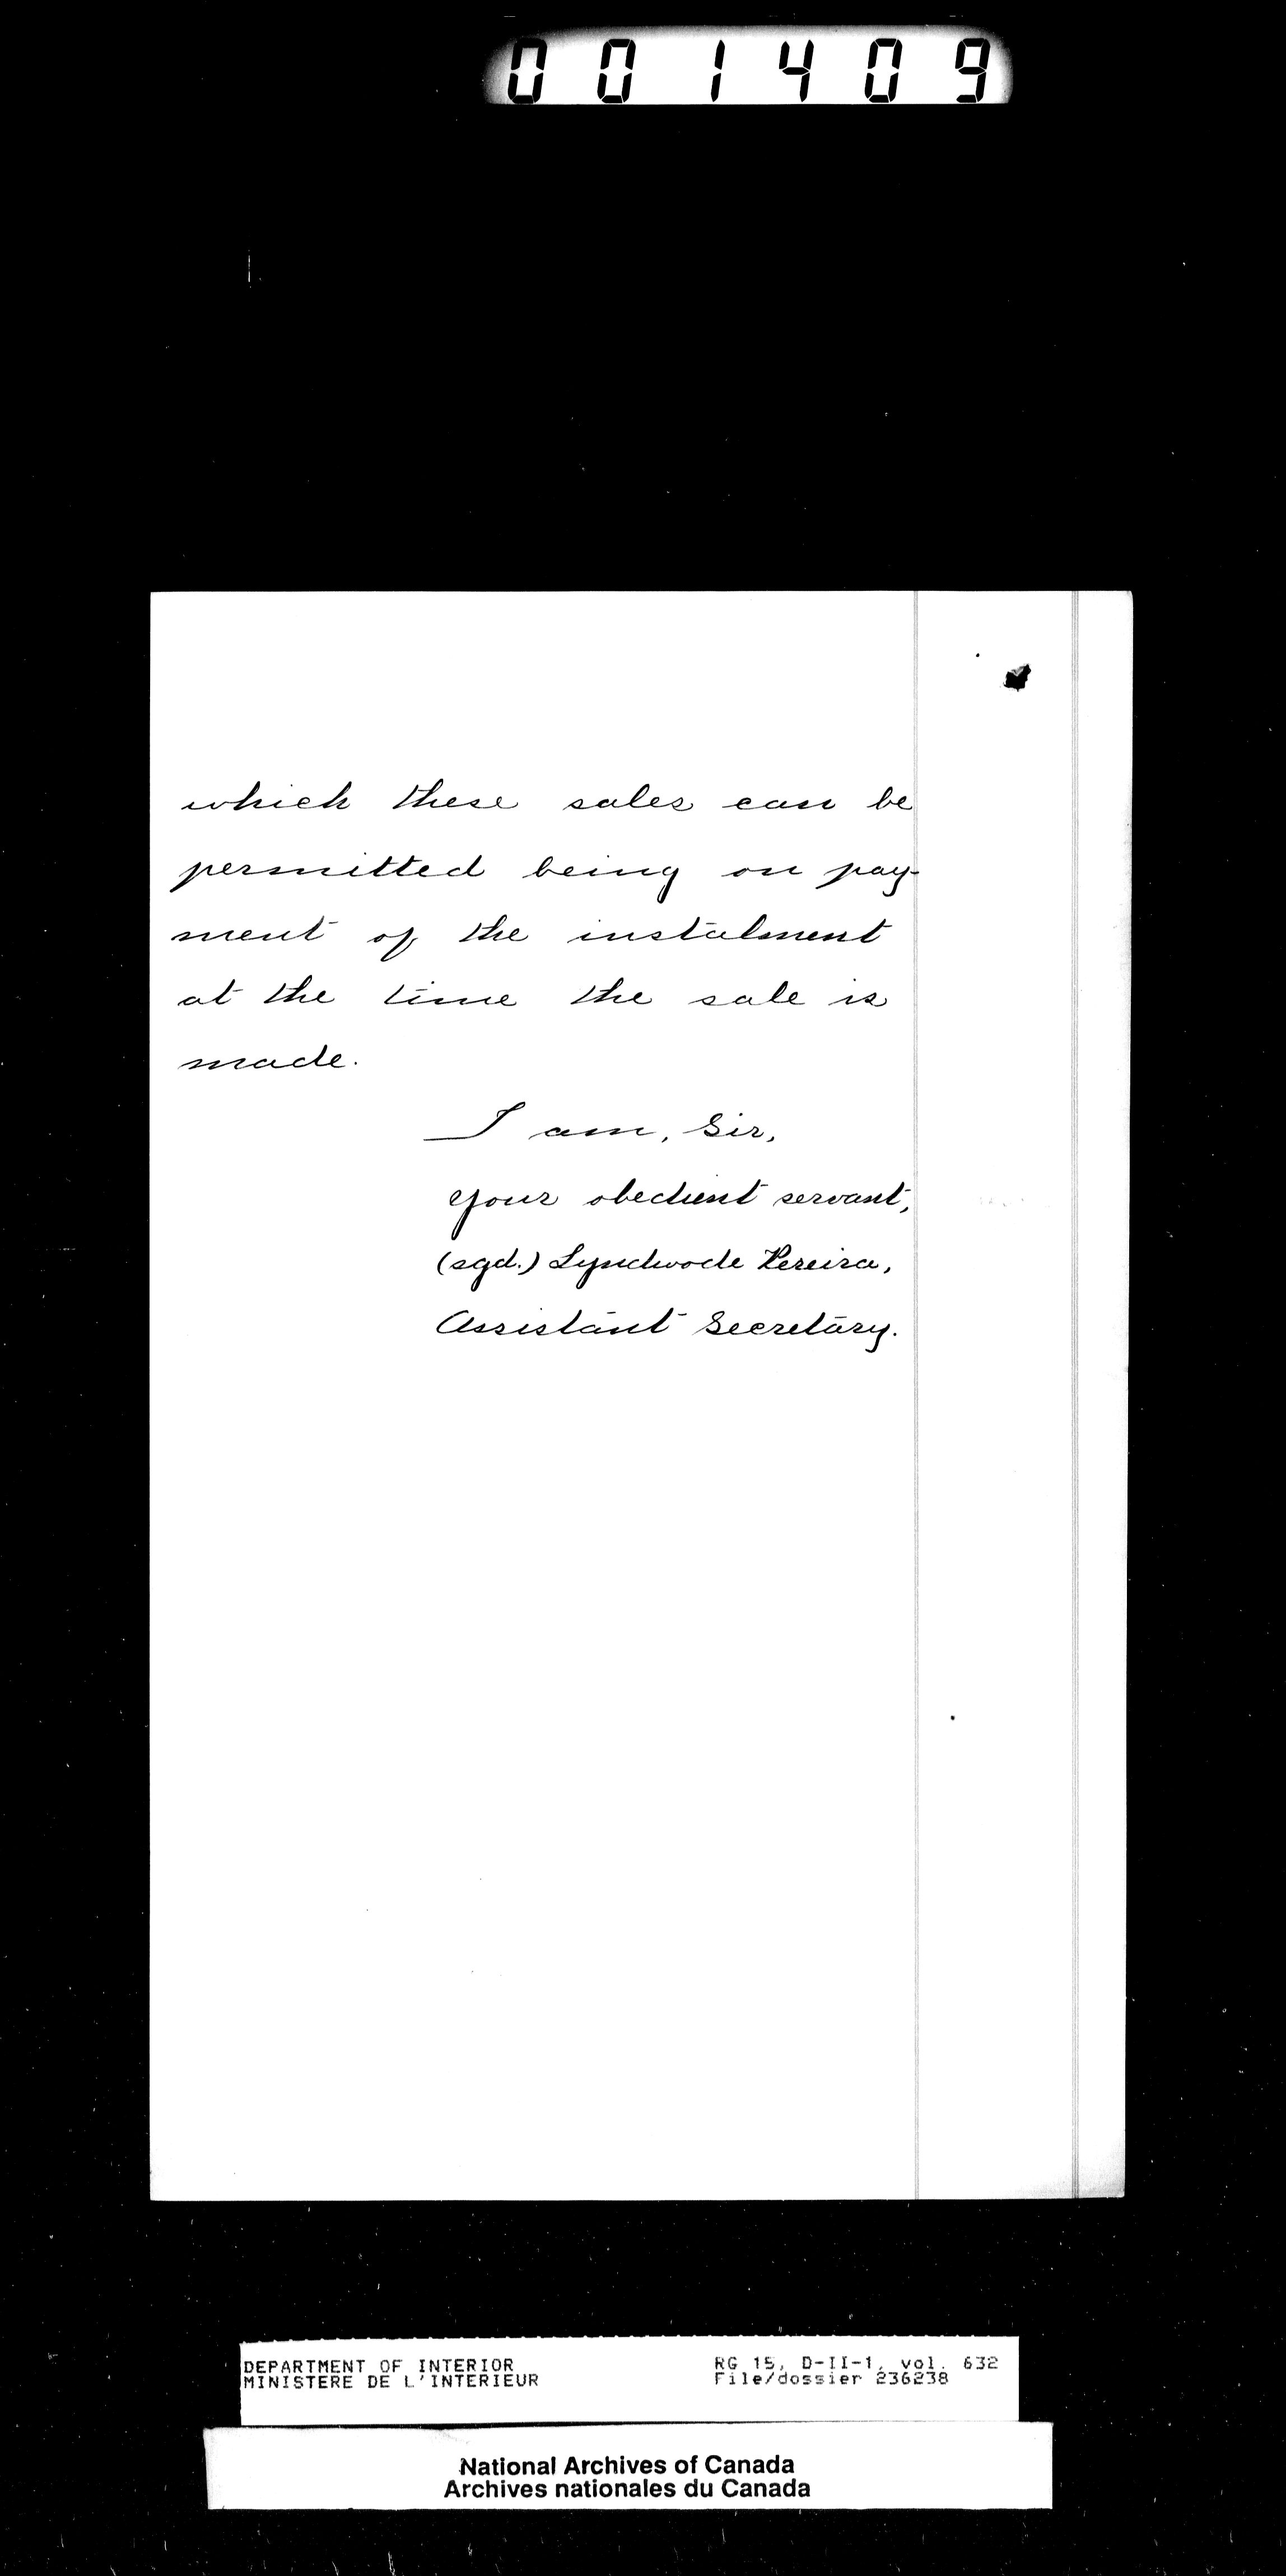 001409
which these sales can be
permitted being on pay-
ment of the instalment
at the time the sale is
made.
I am, Sir,
Your obedient servant,
(sgd.) Lyndwode Pereira,
Assistant Secretary.
DEPARTMENT OF INTERIOR RG 15, D-II-1, vol. 632
MINISTERE DE L'INTERIEUR File/dossier 236238
National Archives of Canada
Archives nationales du Canada